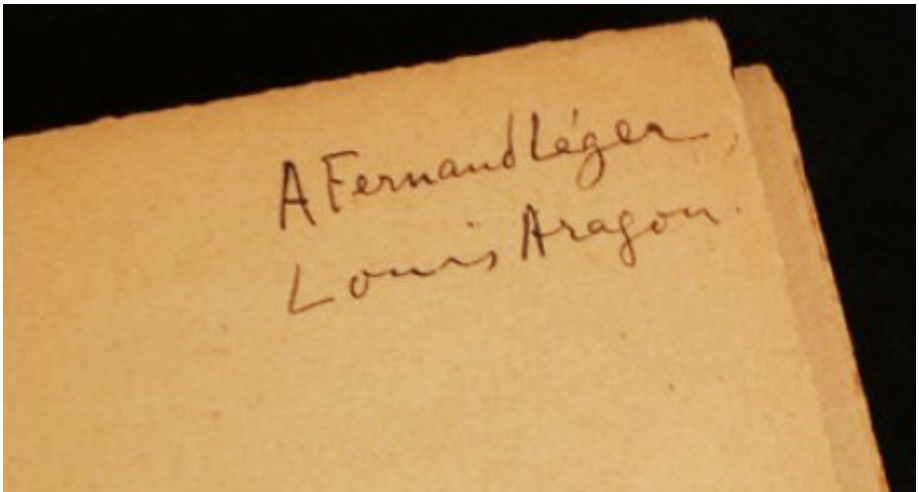 A Fernand Léger
Louis Aragon.